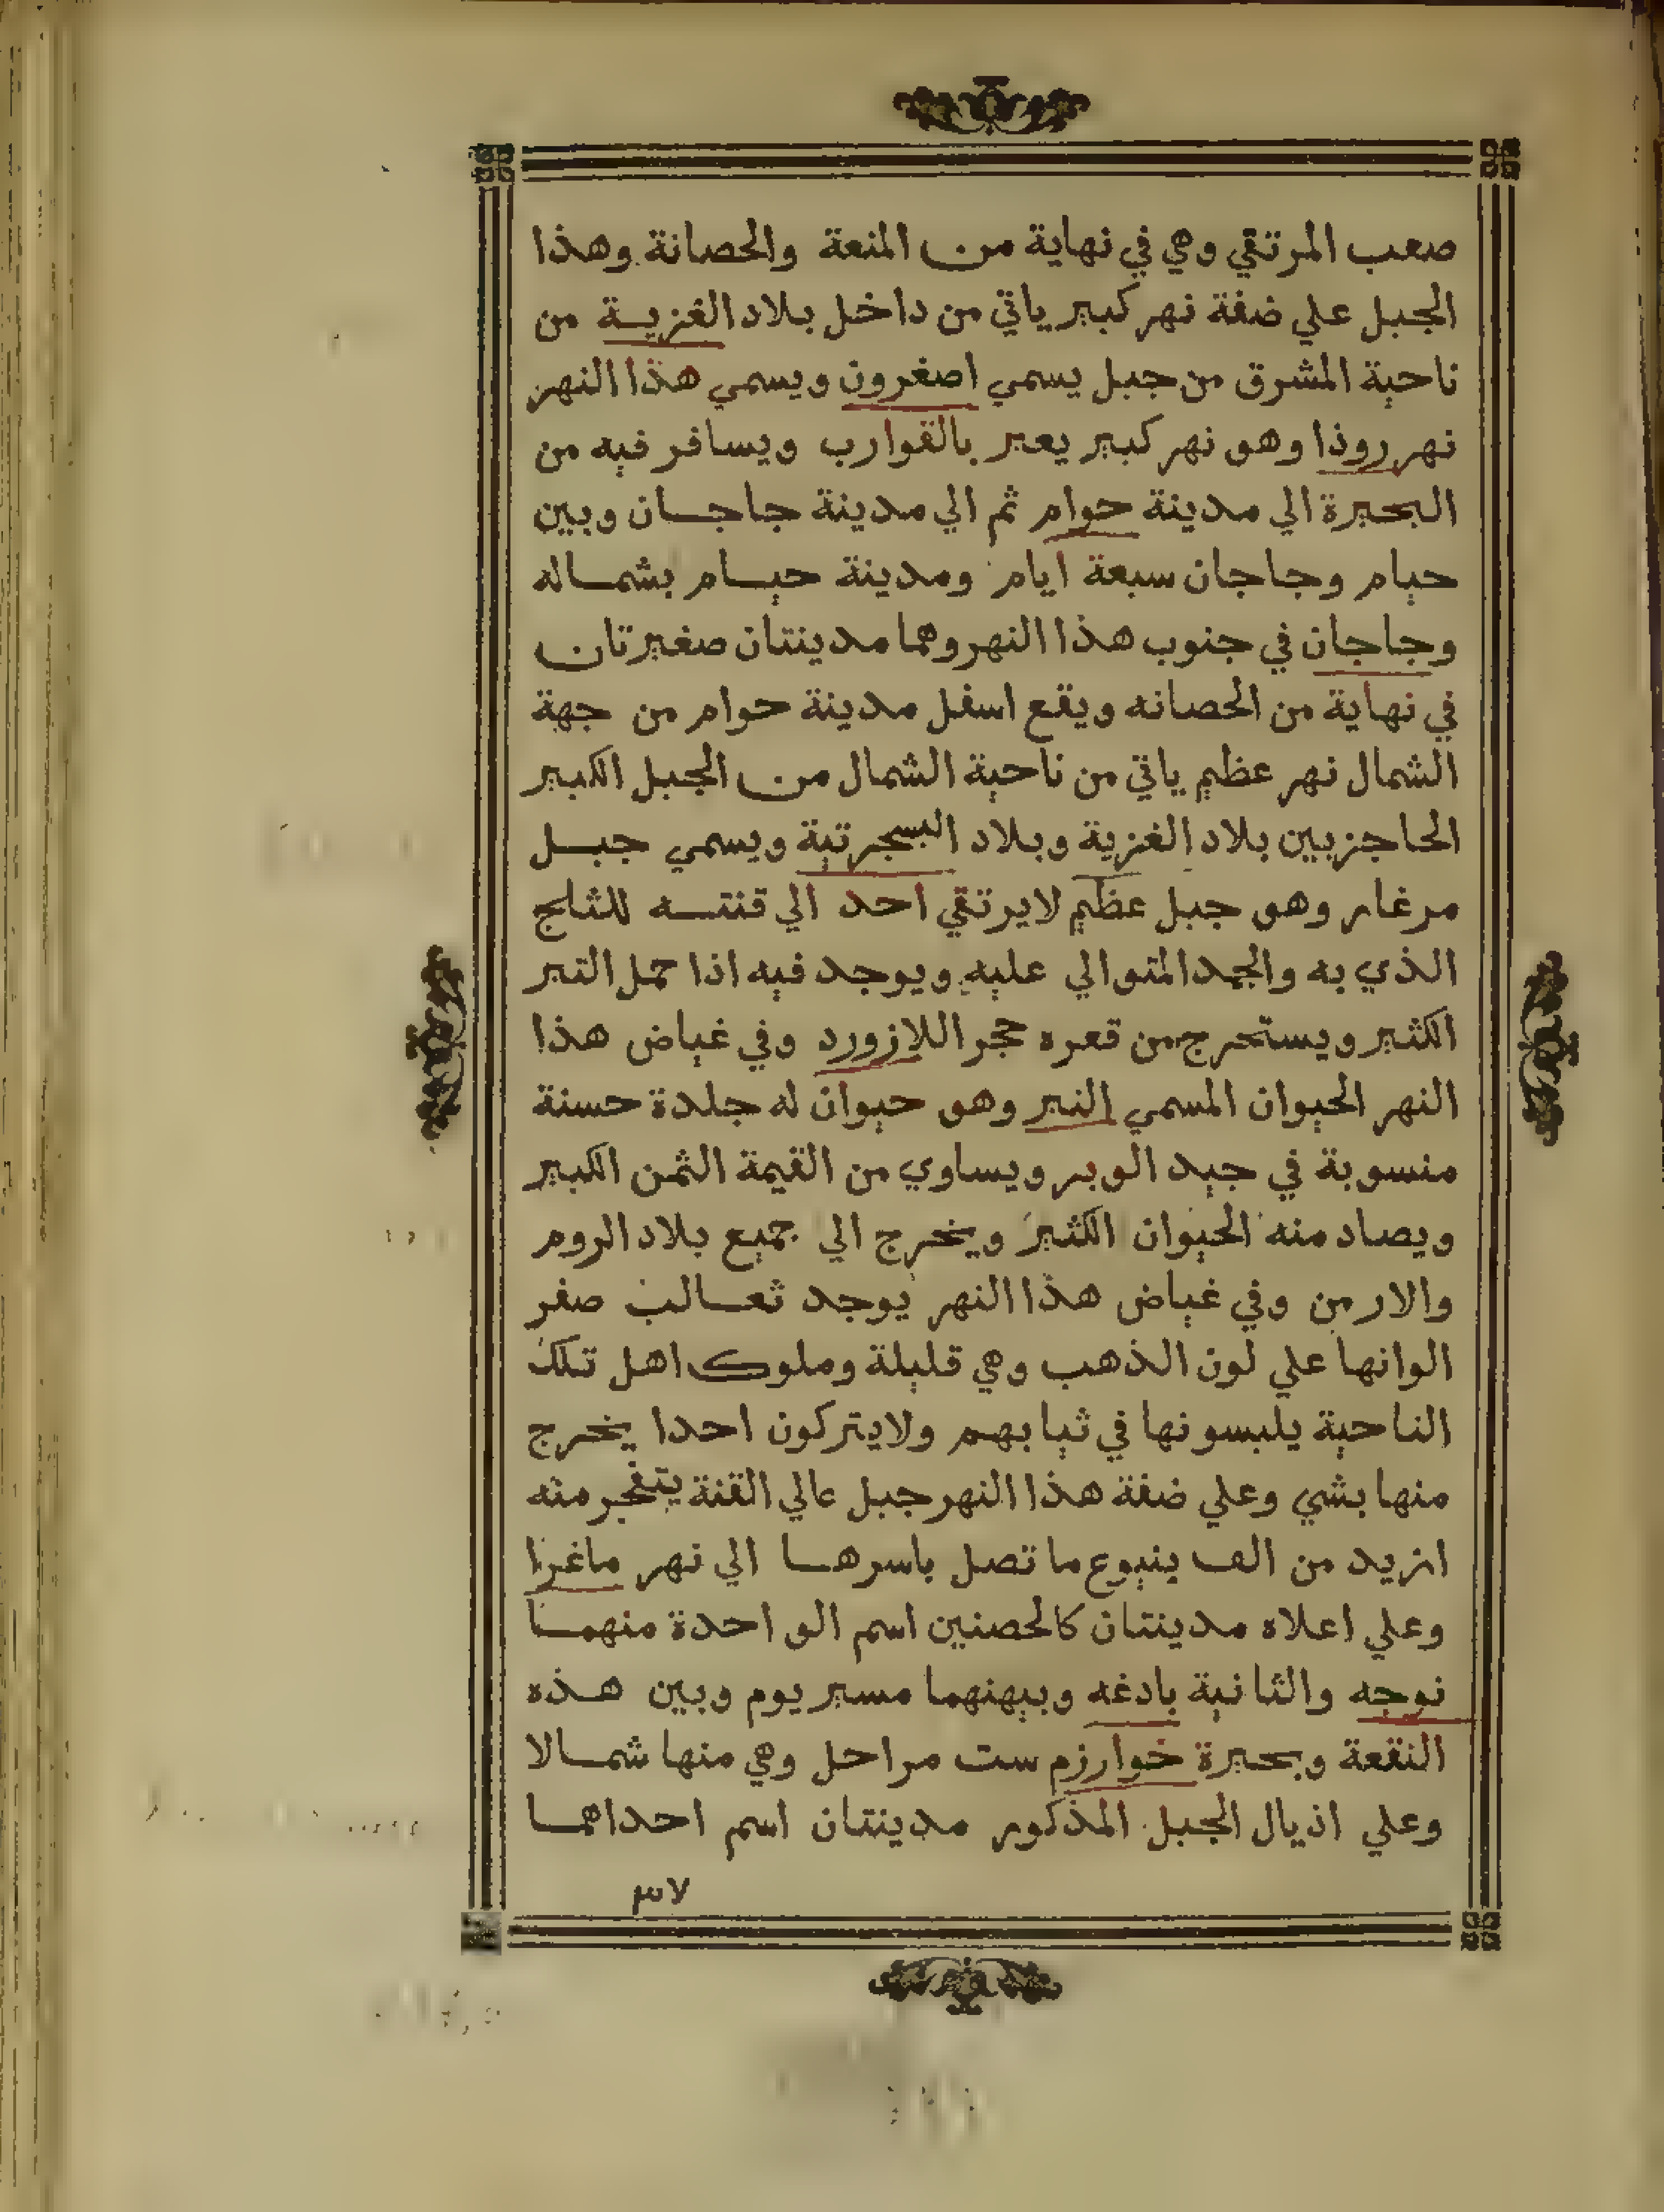 صعب المرتقي وهي في نهاية من المنعة والحصانة وهذا
الجبل علي ضفة نهر كبير ياتي من داخل بلاد الغزية من
ناحية المشرق من جبل يسمي اصغرون ويسمي هذا النهر
نهر روذا وهو نهر كبير يعبر بالقوارب ويسافر فيه من
البحيرة الي مدينة حوام ثم الي مدينة جاجان وبين
حيام وجاجان سبعة ايام ومدينة حيام بشماله
وجاجان في جنوب هذا النهر وهما مدينتان صغيرتان
في نهاية من الحصانه ويقع اسفل مدينة حوام من جهة
الشمال نهر عظيم ياتي من ناحية الشمال من الجبل الكبير
الحاجز بين بلاد الغزية وبلاد البسجرتية ويسمي جبل
مرغار وهو جبل عظيم لا يرتقي احد الي قنتسه للثلج
الذي به والجمد المتوالي عليه ويوجد فيه اذا حمل التبر
الكثير ويستخرج من قعره حجر اللازورد وفي غياض هذا
النهر الحيوان المسمي النبر وهو حيوان له جلدة حسنة
منسوبة في جيد الوبر ويساوي من القيمة الثمن الكبير
ويصاد منه الحيوان الكثير ويخرج الي جميع بلاد الروم
والارمن وفي غياض هذا النهر يوجد ثعالب صفر
الوانها علي لون الذهب وهي قليلة وملوك اهل تلك
الناحية يلبسونها في ثيابهم ولا يتركون احدا يخرج
منها بشي وعلي ضفة هذا النهر جبل عالي القنة يتفجر منه
ازيد من الف ينبوع ما تصل باسرها الي نهر ماغرا
وعلي اعلاه مدينتان كالحصنين اسم الواحدة منهما
نوجه والثانية بادغه وبيهنهما مسير يوم وبين هذه
النقعة وبحيرة خوارزم ست مراحل وهي منها شمالا
وعلي اذيال الجبل المذكور مدينتان اسم احداهما
٣٧